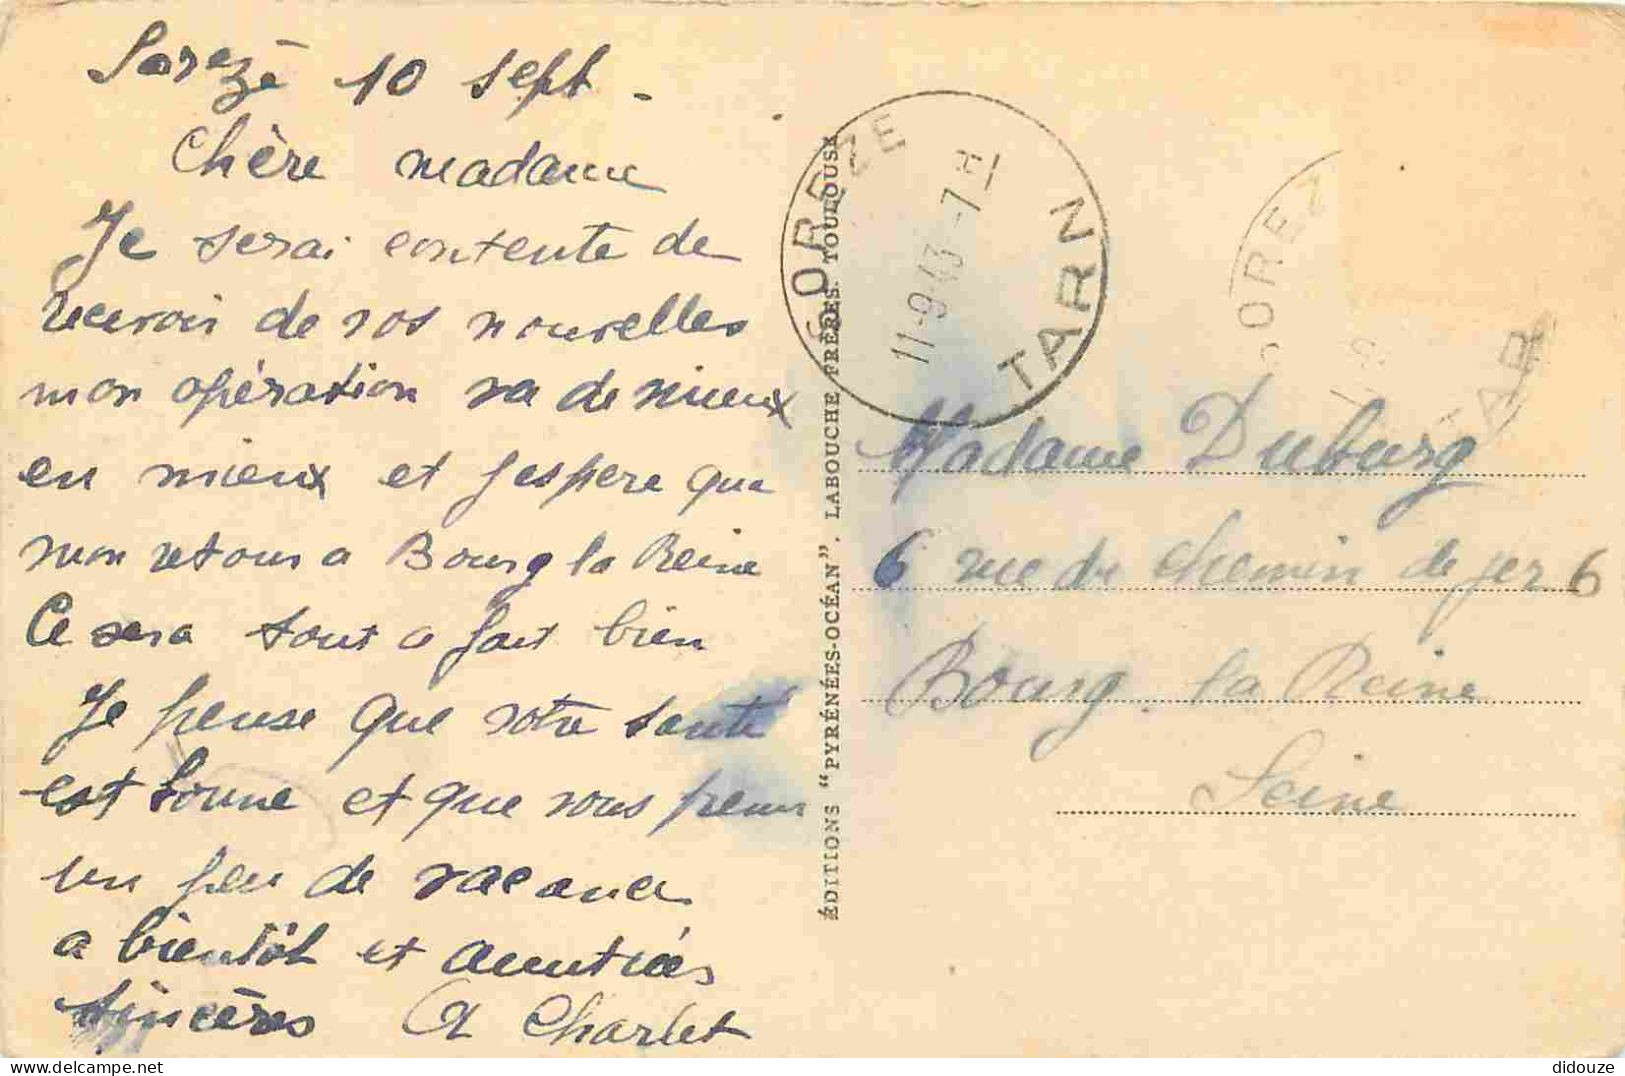 Sorèze 10 sept.
Chère madame
Je serai contente de
recevoir de vos nouvelles
mon opération va de mieux
en mieux et j'espere que
mon retour a Bourg la Reine
Ce sera tout a fait bien
Je pense que votre santé
est bonne et que vous prenez
un peu de vacances
a bientôt et amitiés
sincères A Charlet
ÉDITIONS "PYRÉNÉES-OCÉAN". LABOUCHE FRÈRES. TOULOUSE
SOREZE
11-9-43 -7 H
TARN
SOREZ
TAR
Madame Duburg
6 rue du chemin de fer 6
Bourg. la Reine
Seine
didouze